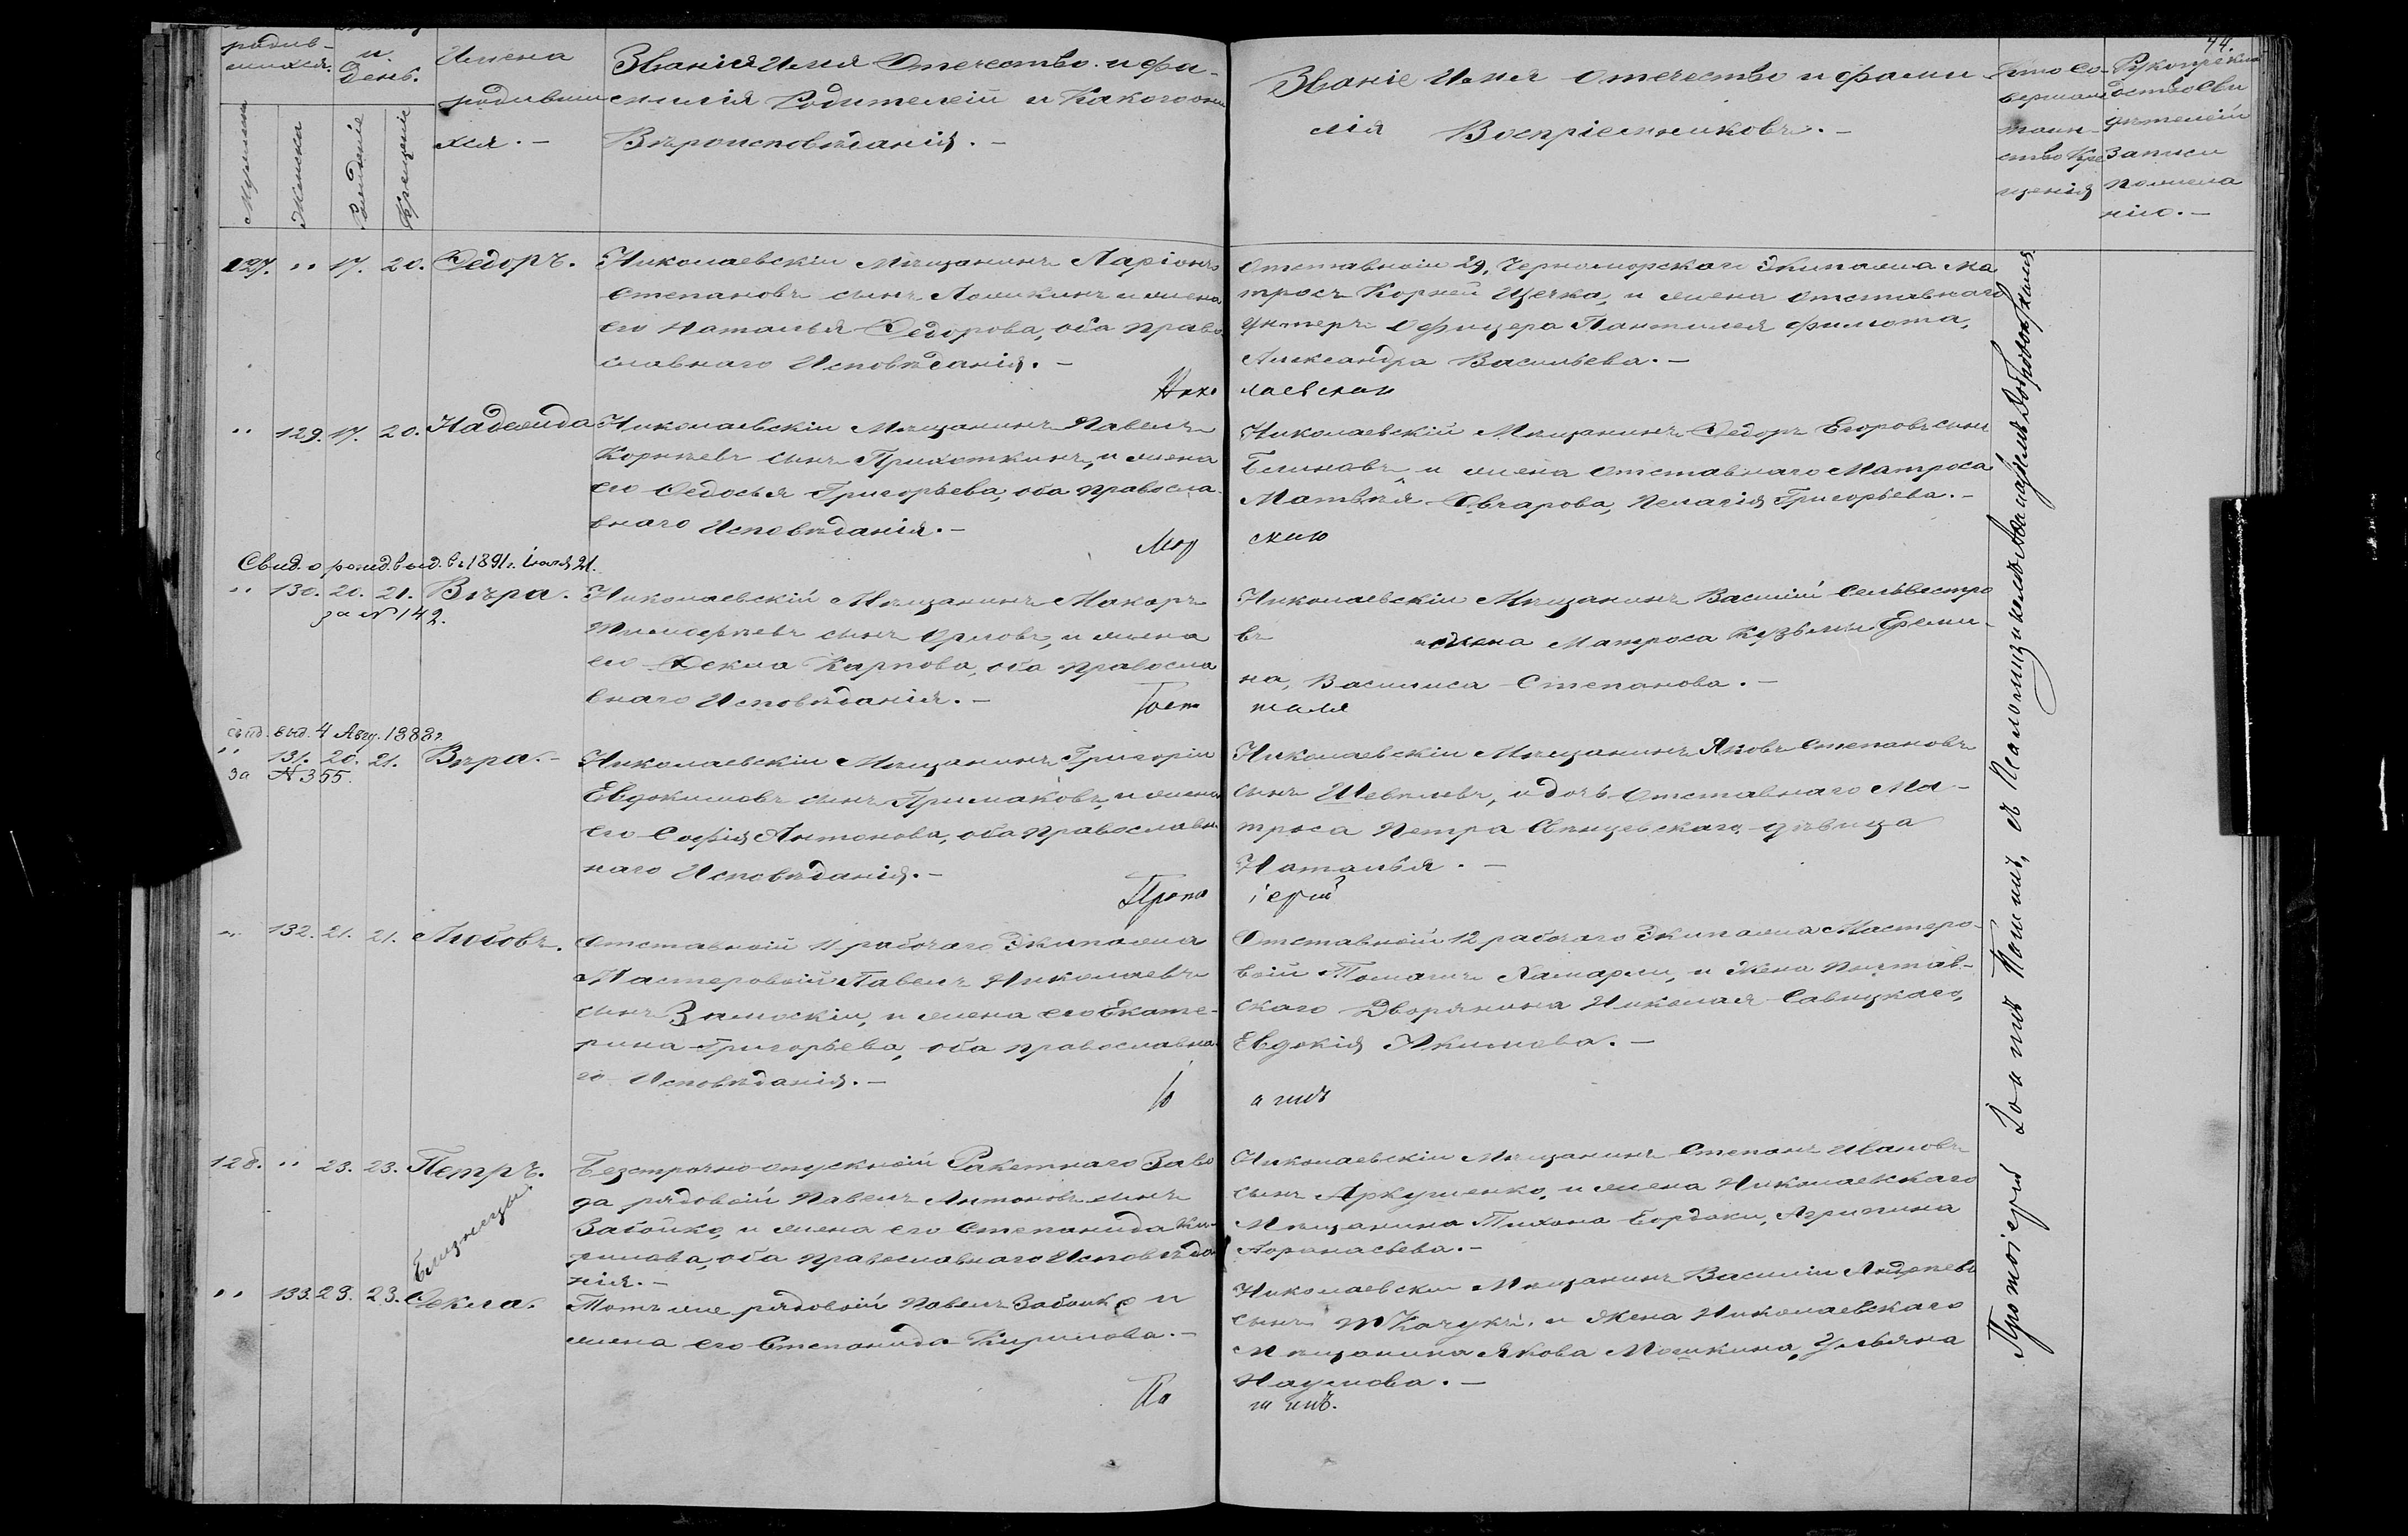 родив-
шихся.
и
День.
Имена
родивши
хся. -
Званія Имя Отечество и фа-
милія Родителей и Какого они
Вѣроисповѣданія. -
Мужеска
Женска
Рожденіе
Крещеніе
Званіе Имя Отечество и фами
лія Воспріемниковъ. -
Кто со-
вершалъ
таин-
ство Кре
щенія
44.
Рукоприкла
дство Сви
дѣтелей
Записи
по жела
нію. -
127. " 17. 20. Ѳедоръ.
Николаевскій Мѣщанинъ Ларіонъ
Степановъ сынъ и жена
его Наталья Ѳедорова, оба право
славнаго Исповѣданія. -
Нико
Отставной 29, Черноморскаго Экипажа Ма
тросъ Корней Щечка, и жена отставнаго
Унтеръ Офицера Пантилея Филота,
Александра Васильева. -
лаевской
" 129. 17. 20. Надежда
Николаевскій Мѣщанинъ Павелъ
Корнѣевъ сынъ и жена
его Ѳедосья Григорьева, оба правосла
внаго Исповѣданія. -
Мор
Николаевскій Мѣщанинъ Ѳедоръ Егоровъ сынъ
Блиновъ, и жена отставнаго Матроса
Матвѣя Овчарова, Пелагія Григорьева. -
скаго
Свид. о рожд. выд. въ 1891 г. 21.
" 130. 20. 21. Вѣра.
за № 142.
Николаевскій Мѣщанинъ Макаръ
Тимофѣевъ сынъ Орловъ, и жена
его Ѳекла Карпова, оба правосла
внаго Исповѣданія. -
Госпи
Николаевскій Мѣщанинъ Василій Сельвестро
въ и жена Матроса Кузьмы Ереми-
на, Василиса Степанова. -
таля
свид. выд. 4 Авгу. 1888 г.
" 131. 20. 21. Вѣра. -
за № 355.
Николаевскій Мѣщанинъ Григорій
Евдокимовъ сынъ Примаковъ, и жена
его Софія Антонова, оба православ-
наго Исповѣданія. -
Прото
Николаевскій Мѣщанинъ Яковъ Степановъ
сынъ Шевелевъ, и дочь Отставнаго Ма-
троса Петра дѣвица
Наталья. -
іерей
" 132. 21. 21. Любовь.
Отставной 11 рабочаго Экипажа
Мастеровой Павелъ Николаевъ
сынъ Замоскій, и жена его Екате-
рина Григорьева, оба православна
го Исповѣданія. -
Іо
Отставной 12 рабочаго Экипажа Мастеро-
вой и Жена
скаго Дворянина Николая Савицкаго,
Евдокія Якимова. -
аннъ
128. " 23. 23. Петръ.
Близнецы
Безсрочно-отпускной Ракетнаго Заво
да рядовой Павелъ Антоновъ сынъ
Забойко, и жена его Степанида Ки-
рилова, оба православнаго Исповѣда
нія. -
Николаевскій Мѣщанинъ Степанъ Ивановъ
сынъ Аркушенко, и жена Николаевскаго
Мѣщанина Тихона Бордоки, Агрипина
Афанасьева. -
" 133. 23. 23. Ѳекла.
Тотъ же рядовой Павелъ Забойко и
жена его Степанида Кирилова. -
По
Николаевскій Мѣщанинъ Василій Андрѣевъ
сынъ Ткачукъ, и Жена Николаевскаго
Мѣщанина Якова Мошкина, Ульяна
Наумова. -
Протоіерей Іоаннъ съ Псаломщикомъ